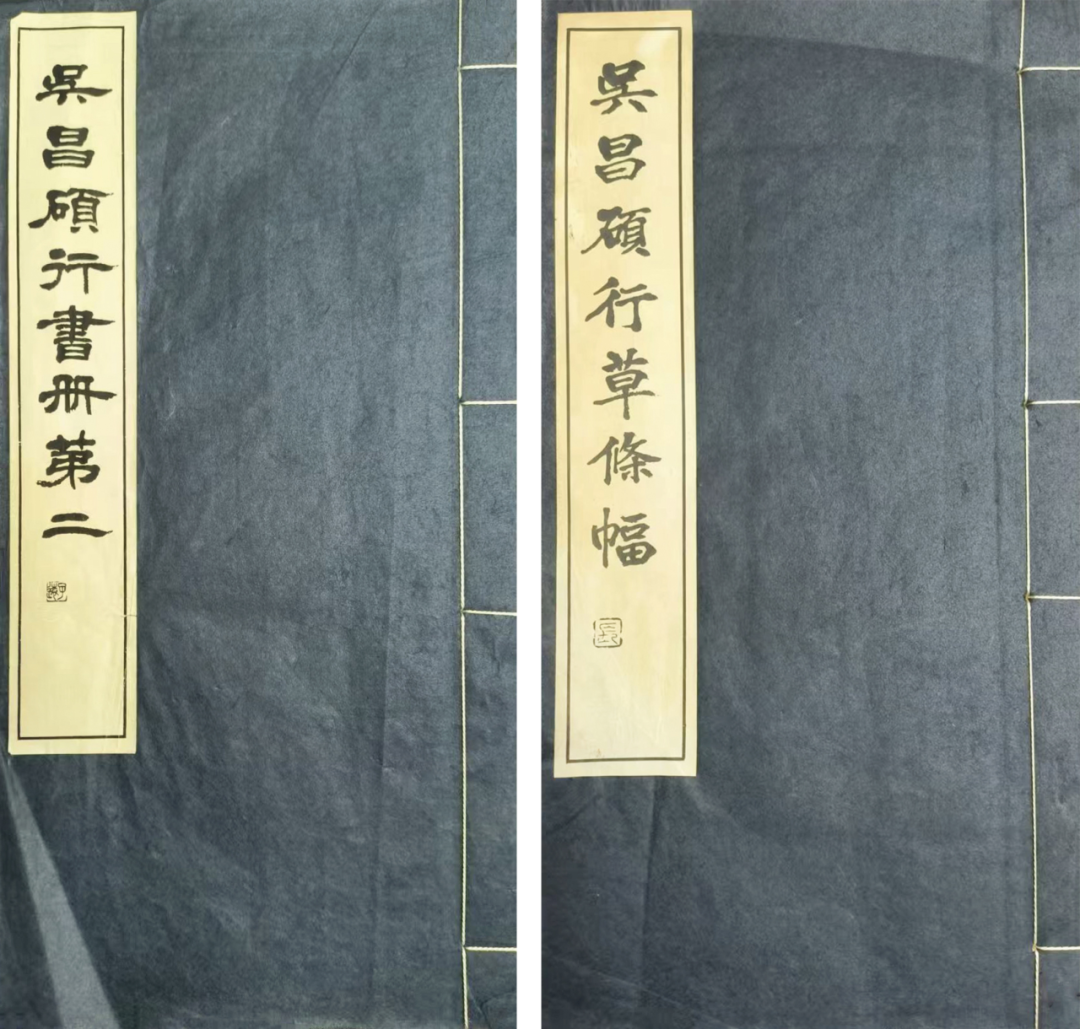 吳昌碩行書册第二
吳昌碩行草條幅